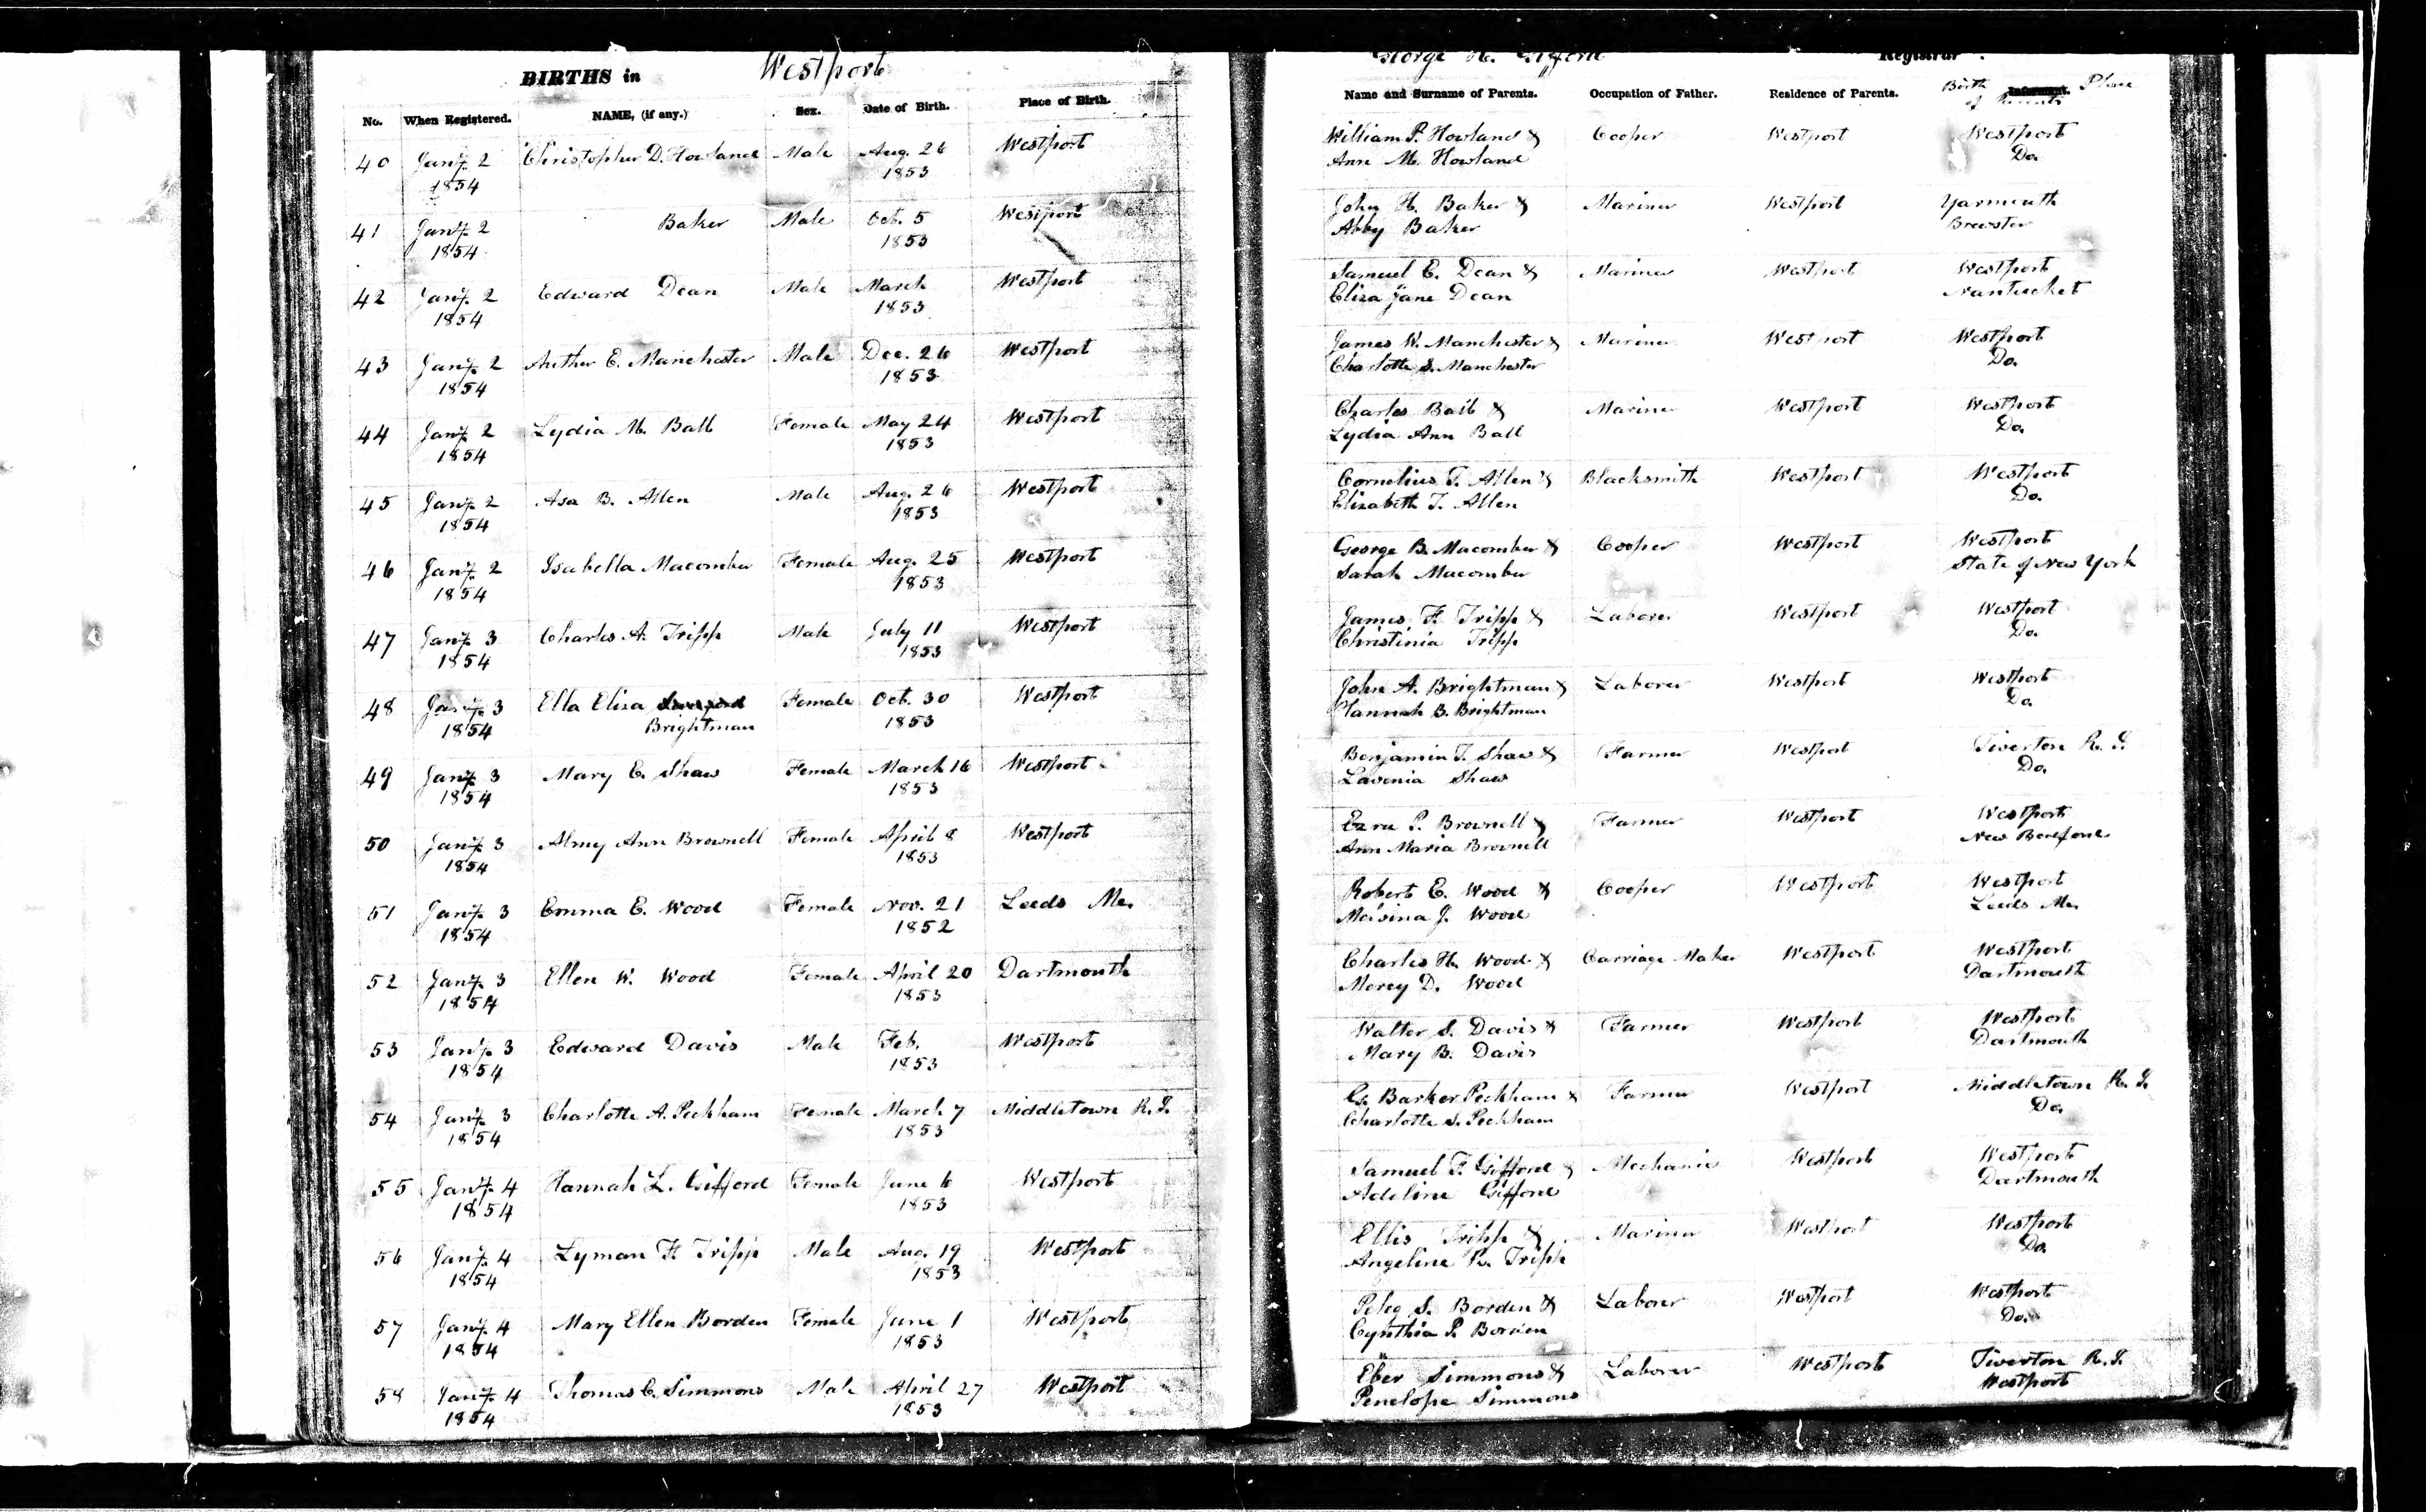 BIRTHS in Westport
No. When Registered. NAME, (if any.) Sex. Date of Birth. Place of Birth.
40 Jany. 2 Christopher D. Howland Male Aug. 26 Westport
1854 1853
41 Jany. 2 Baker Male Oct. 5 Westport
1854 1853
42 Jany. 2 Edward Dean Male March Westport
1854 1853
43 Jany. 2 Arther E. Manchester Male Dec. 26 Westport
1854 1853
44 Jany. 2 Lydia M. Ball Female May 24 Westport
1854 1853
45 Jany. 2 Asa B. Allen Male Aug. 26 Westport
1854 1853
46 Jany. 2 Isabella Macomber Female Aug. 25 Westport
1854 1853
47 Jany. 3 Charles A. Tripp Male July 11 Westport
1854 1853
48 Jany. 3 Ella Eliza Female Oct. 30 Westport
1854 Brightman 1853
49 Jany. 3 Mary E. Shaw Female March 16 Westport
1854 1853
50 Jany. 3 Almy Ann Brownell Female April 8 Westport
1854 1853
51 Jany. 3 Emma E. Wood Female Nov. 21 Leeds Me.
1854 1852
52 Jany. 3 Ellen W. Wood Female April 20 Dartmouth
1854 1853
53 Jany. 3 Edward Davis Male Feb. Westport
1854 1853
54 Jany. 3 Charlotte A. Peckham Female March 7 Middletown R.I.
1854 1853
55 Jany. 4 Hannah L. Gifford Female June 6 Westport
1854 1853
56 Jany. 4 Lyman H. Tripp Male Aug. 19 Westport
1854 1853
57 Jany. 4 Mary Ellen Borden Female June 1 Westport
1854 1853
58 Jany. 4 Thomas C. Simmons Male April 27 Westport
1854 1853
George H. Gifford Registrar.
Name and Surname of Parents. Occupation of Father. Residence of Parents. Birth Place
of Parents
William P. Howland & Cooper Westport Westport
Ann M. Howland Do.
John H. Baker & Mariner Westport Yarmouth
Abby Baker Brewster
Samuel E. Dean & Mariner Westport Westport
Eliza Jane Dean Nantucket
James W. Manchester & Mariner Westport Westport
Charlotte S. Manchester Do.
Charles Ball & Mariner Westport Westport
Lydia Ann Ball Do.
Cornelius T. Allen & Blacksmith Westport Westport
Elizabeth T. Allen Do.
George B. Macomber & Cooper Westport Westport
Sarah Macomber State of New York
James F. Tripp & Laborer Westport Westport
Christinia Tripp Do.
John A. Brightman & Laborer Westport Westport
Hannah B. Brightman Do.
Benjamin T. Shaw & Farmer Westport Tiverton R. I.
Lavenia Shaw Do.
Ezra P. Brownell & Farmer Westport Westport
Ann Maria Brownell New Bedford
Robert E. Wood & Cooper Westport Westport
Melvina J. Wood Leeds Me.
Charles H. Wood & Carriage Maker Westport Westport
Mercy D. Wood Dartmouth
Walter S. Davis & Farmer Westport Westport
Mary B. Davis Dartmouth
G. Barker Peckham & Farmer Westport Middletown R. I.
Charlotte S. Peckham Do.
Samuel F. Gifford & Mechanic Westport Westport
Adeline Gifford Dartmouth
Ellis Tripp & Mariner Westport Westport
Angeline R. Tripp Do.
Peleg S. Borden & Laborer Westport Westport
Cynthia P. Borden Do.
Eber Simmons & Laborer Westport Tiverton R. I.
Penelope Simmons Westport